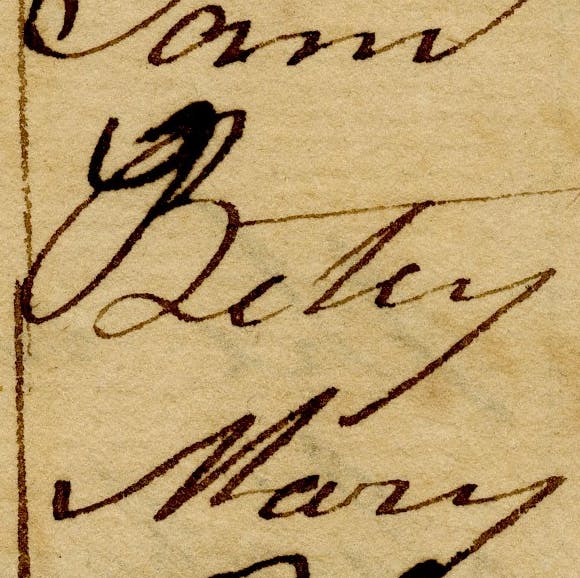 Sam
Betey
Mary